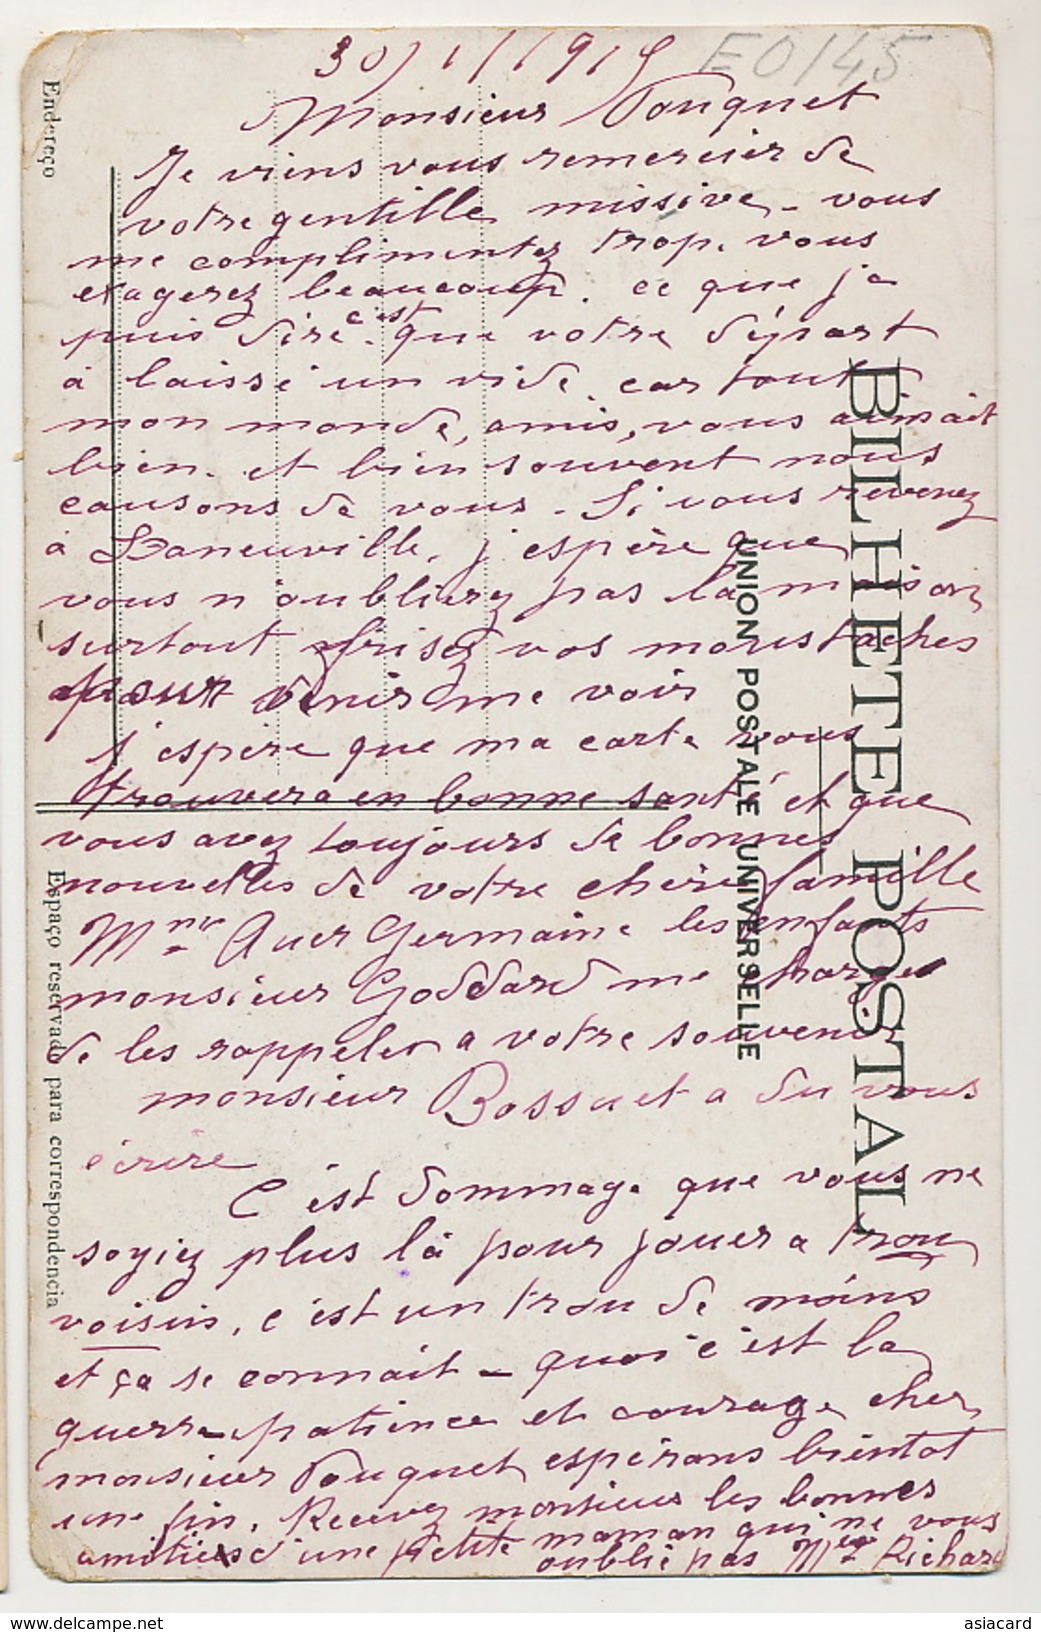 30/1/1915
E0145
Monsieur Fouquet
Je viens vous remercier de
votre gentille missive - vous
me complimentez trop. vous
exagerez beaucoup. ce que je
puis dire c'est que votre départ
à laissé un vide car tout
mon monde, amis, vous aimait
bien. et bien souvent nous
causons de vous - Si vous revenez
à Laneuville, j'espère que
vous n'oublierez pas la maison
surtout frisez vos moustaches
pour venir me voir
j'espère que ma carte vous
trouvera en bonne santé et que
vous avez toujours de bonnes
nouvelles de votre chère famille
Mme Auer Germaine les enfants
monsieur Goddard me charge
de les rappeler a votre souvenir
monsieur Bossuet a du vous
écrire
C'est dommage que vous ne
soyiez plus là pour jouer a trou
voisin, c'est un trou de moins
et ça se connait - quoi c'est la
guerre - patience et courage cher
monsieur Fouquet espérons bientot
une fin. Recevez monsieur les bonnes
amitiés d'une petite maman qui ne vous
oublie pas Mme Richard
BILHETE POSTAL
UNION POSTALE UNIVERSELLE
Endereço
Espaço reservado para correspondencia
www.delcampe.net
asiacard